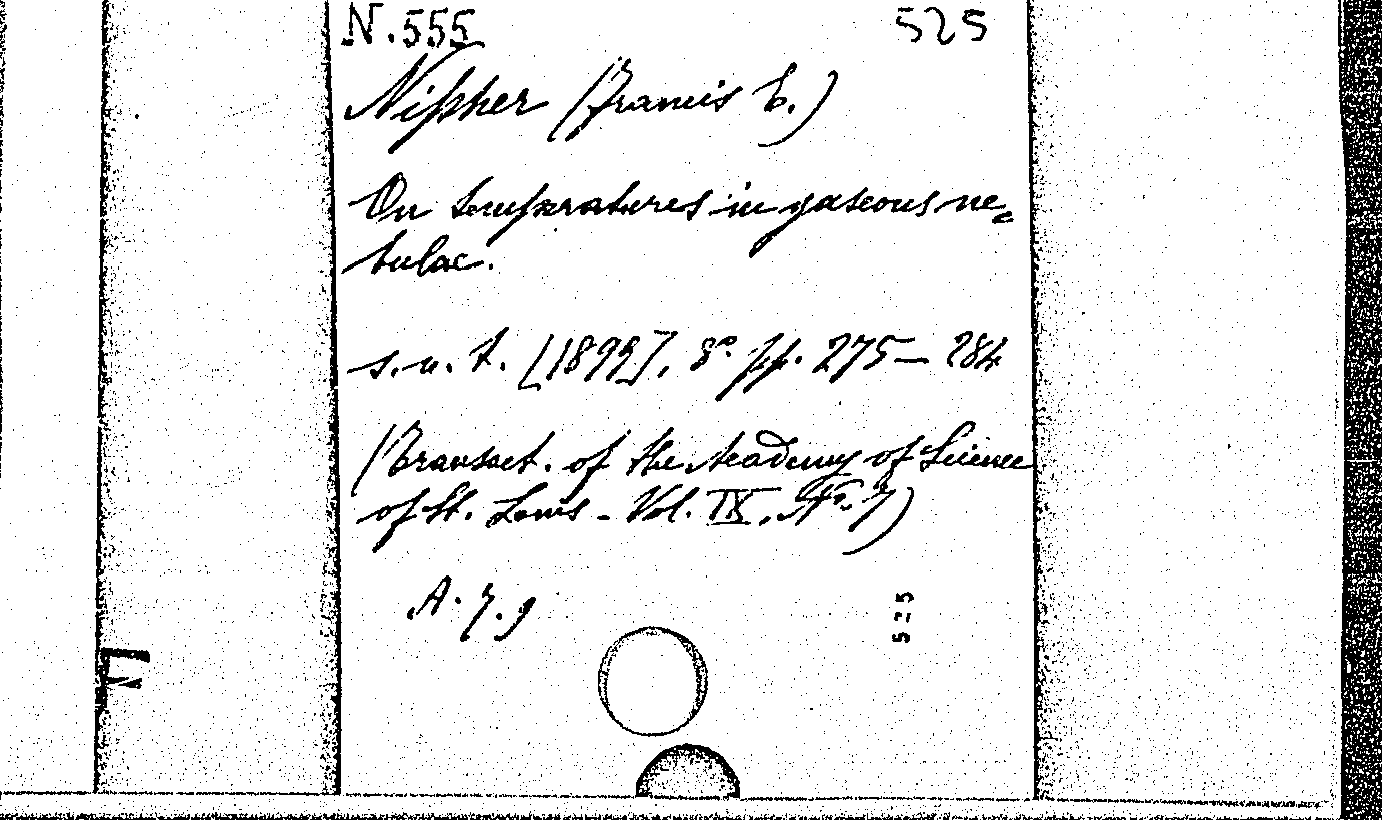 N.555 525
Nipher (Francis E.)
On temperatures in gaseous ne=
bulae.
s.n.t. [1899], 8° pp. 275 - 284
(Transact. of the Academy of Science
of St. Louis - Vol. IX, No. 7)
A. 7. 9
525
F